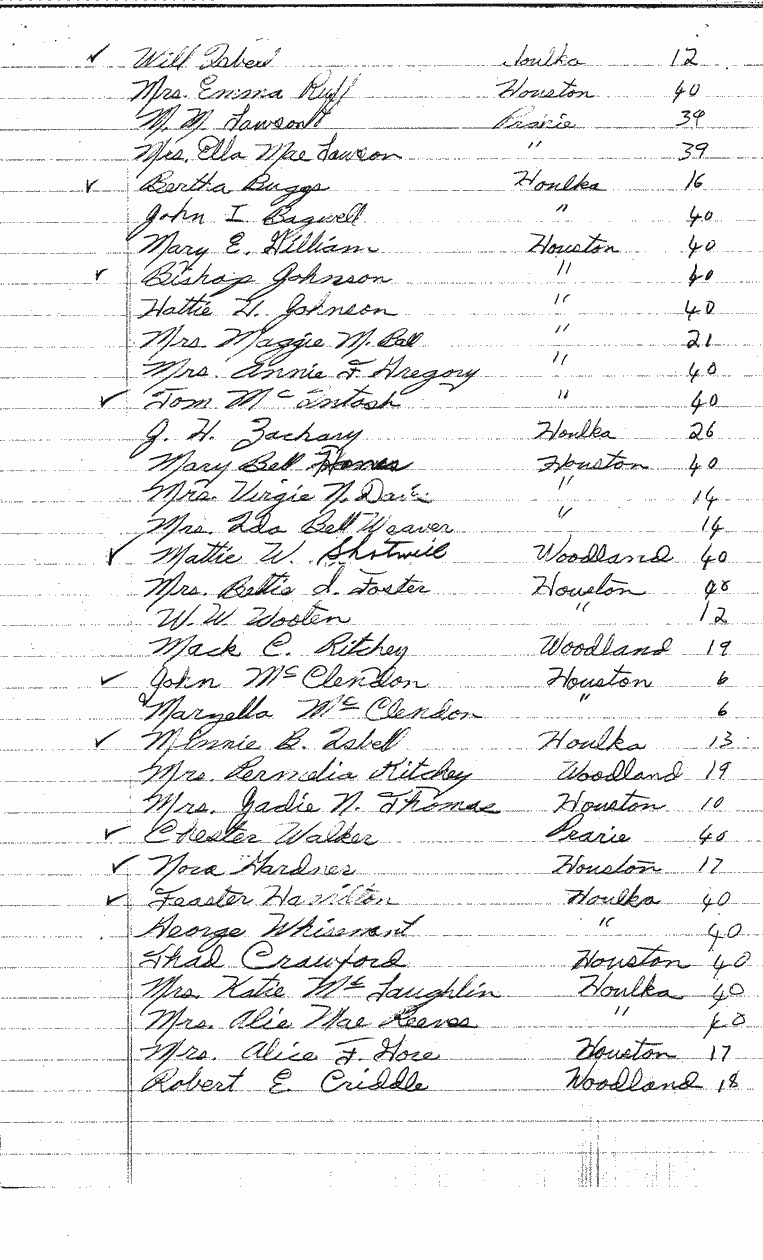 ✓ Will Isbell Houlka 12
Mrs. Emma Ruff Houston 40
M. M. Lawson Prairie 39
Mrs. Ella Mae Lawson " 39
✓ Bertha Buggs Houlka 16
John I. Bagwell " 40
Mary E. Gilliam Houston 40
✓ Bishop Johnson " 40
Hattie H. Johnson " 40
Mrs. Maggie M. Ball " 21
Mrs. Annie F. Gregory " 40
✓ Tom McIntosh " 40
J. H. Zachary Houlka 26
Mary Bell Houston 40
Mrs. Virgie N. Davis " 14
Mrs. Ida Bell Weaver " 14
✓ Mattie W. Shotwell Woodland 40
Mrs. Bettie I. Foster Houston 40
W. W. Wooten " 12
Mack C. Ritchey Woodland 19
✓ John McClendon Houston 6
Maryella McClendon " 6
✓ Minnie B. Isbell Houlka 13
Mrs. Permelia Ritchey Woodland 19
Mrs. Jadie N. Thomas Houston 10
✓ Chester Walker Prarie 40
✓ Nora Gardner Houston 17
✓ Feaster Hamilton Houlka 40
George Whisenant " 40
Thad Crawford Houston 40
Mrs. Katie McLaughlin Houlka 40
Mrs. Alie Mae Reeves " 40
Mrs. Alice F. Gore Houston 17
Robert E. Criddle Woodland 18